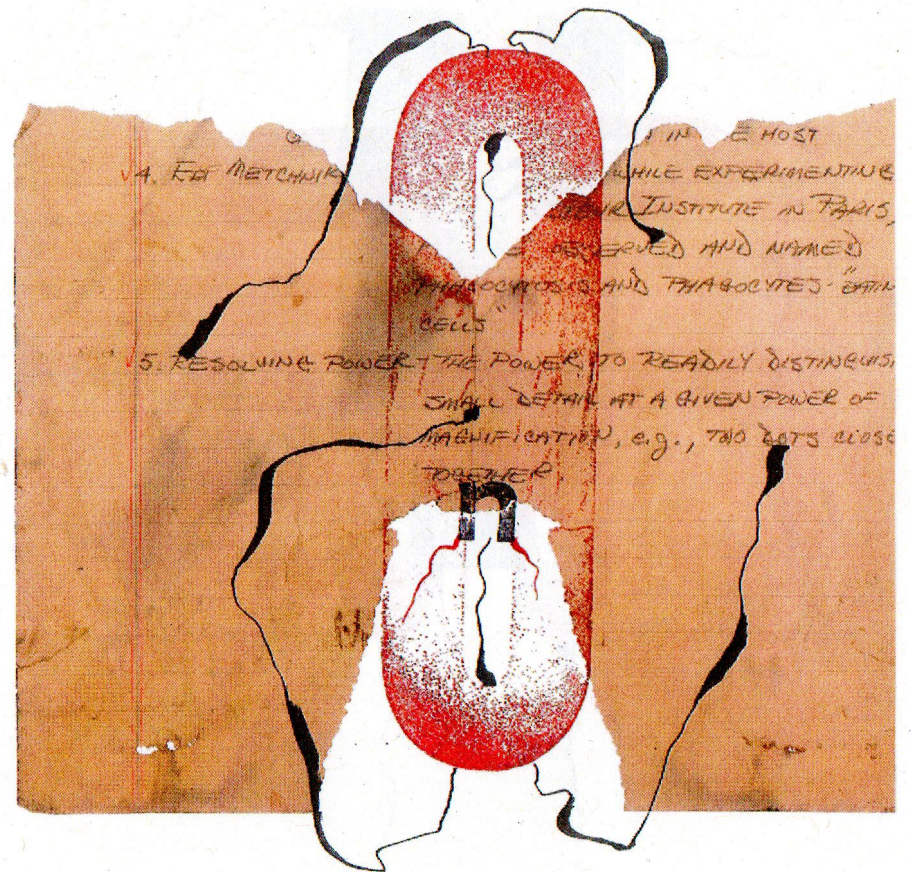 IN THE MOST
4. METCHNIK WHILE EXPERIMENTING
INSTITUTE IN PARIS,
OBSERVED AND NAMED
PHAGOCYTOSIS AND PHAGOCYTES - "EATIN
CELLS"
5. RESOLVING POWER - THE POWER TO READILY DISTINGUIS
SMALL DETAIL AT A GIVEN POWER OF
MAGNIFICATION, e.g., TWO DOTS CLOSE
TOGETHER.
n